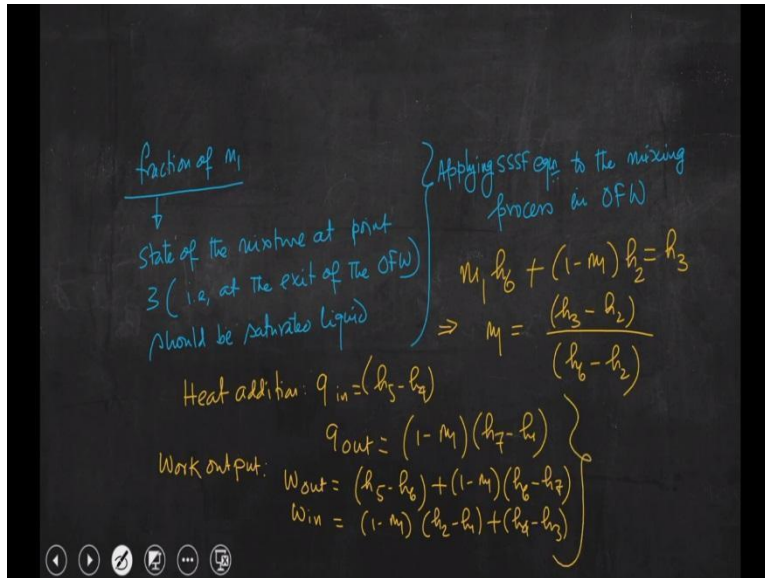 fraction of m₁
↓
state of the mixture at point
3 (i.e., at the exit of the OFW)
should be saturated liquid
Applying SSSF eqn. to the mixing
process in OFW
m₁h₆ + (1-m₁)h₂ = h₃
⇒ m₁ = (h₃-h₂) / (h₆-h₂)
Heat addition: q in = (h₅-h₄)
q out = (1-m₁)(h₇-h₁)
Work output: Wout = (h₅-h₆) + (1-m₁)(h₆-h₇)
Win = (1-m₁)(h₂-h₁) + (h₄-h₃)